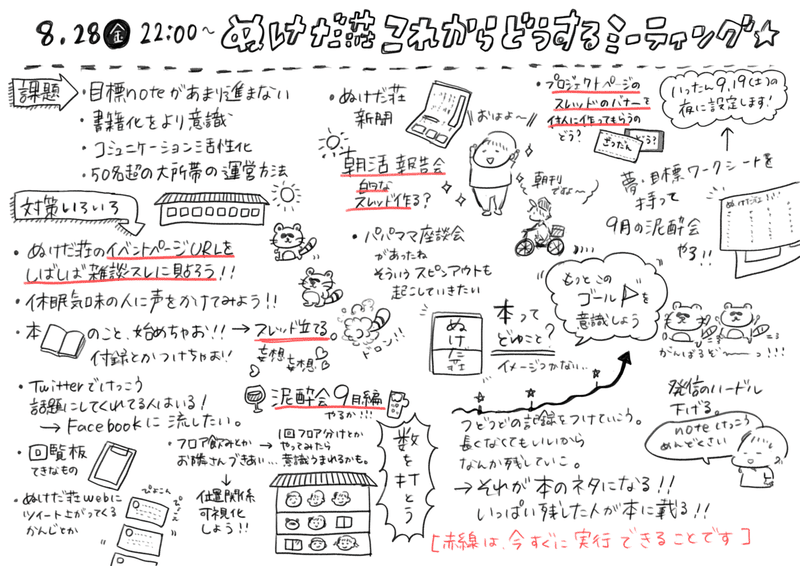 8.28 金 22:00~ ぬけだ荘これからどうするミーティング☆
課題
・目標noteがあまり進まない
・書籍化をより意識
・コミュニケーション活性化
・50名超の大所帯の運営方法
対策いろいろ
・ぬけだ荘のイベントページURLを
しばしば雑談スレに見よろう!!
・休眠気味の人に声をかけてみよう!!
・本 のこと、始めちゃお!! → スレッド立てる
付録とかつけちゃお!!
妄想
妄想
ドロン!!
・Twitterでけっこう
話題にしてくれてる人はいる!
→ Facebookに流したい。
・回覧板
てきなもの
・ぬけだ荘webに
ツイート上がってくる
かんじとか
ぴょこん
ぴょえ
泥酔会9月編
やるか!!!
・フロア飲みとか
お隣さんづきあい…
→ 1回フロア分けとか
やってみたら
意識うまれるかも。
↓
位置関係
可視化
しよう!!
数を打とう
・ぬけだ荘
新聞
おはよ〜
朝活報告会
的な
スレッド作る?
朝刊
ですよ〜
・パパママ座談会
があったね
そういうスピンアウトも
起こしていきたい
・プロジェクトページの
スレッドのバナーを
住人に作ってもらうの
どう?
ざつだん
どう?
いったん9.19(土)の
夜に設定します!
夢・目標ワークシートを
持って
9月の泥酔会
やる!!
ぬけだ荘
本って
どゆこと?
イメージつかない…
もっとこの
ゴール を
意識しよう
がんばるぞ〜っ!!!
つどつどの記録をつけていこう。
長くなくてもいいから
なんか残していこ。
→ それが本のネタになる!!
いっぱい残した人が本に載る!!
発信のハードル
下げる。
noteけっこう
めんどくさい
[赤線は、今すぐに実行できることです]